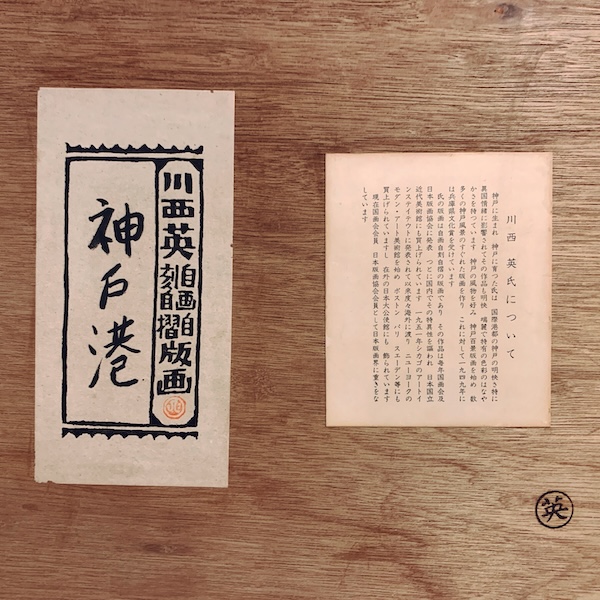 川西英自画自刻自摺版画
神戸港
川西 英氏について
神戸に生まれ 神戸に育つた氏は 国際港都の神戸の明快さ特に
異国情緒に影響されてその作品も明快 瑞麗で特有の色彩のはなや
かさを持つています 神戸の風物を好み 神戸百景版画を始め 数
多くの神戸風景のすぐれた版画を作り これに対して一九四九年に
は兵庫県文化賞を受けています
氏の版画は自画自刻自摺の版画であり その作品は毎年国画会及
日本版画協会に発表 つとに国内でその特異性を謳われ 日本国立
近代美術館にも買上げられています 一九五一年シカゴのアートイ
ンステイテウトに発表されて以来度々海外に渡り ニューヨークの
モダン・アート美術館を始め ボストン パリ スエーデン等にも
買上げられていますし 在外の日本大公使館にも 飾られています
現在国画会会員 日本版画協会会員として日本版画界に重きをな
しています
英